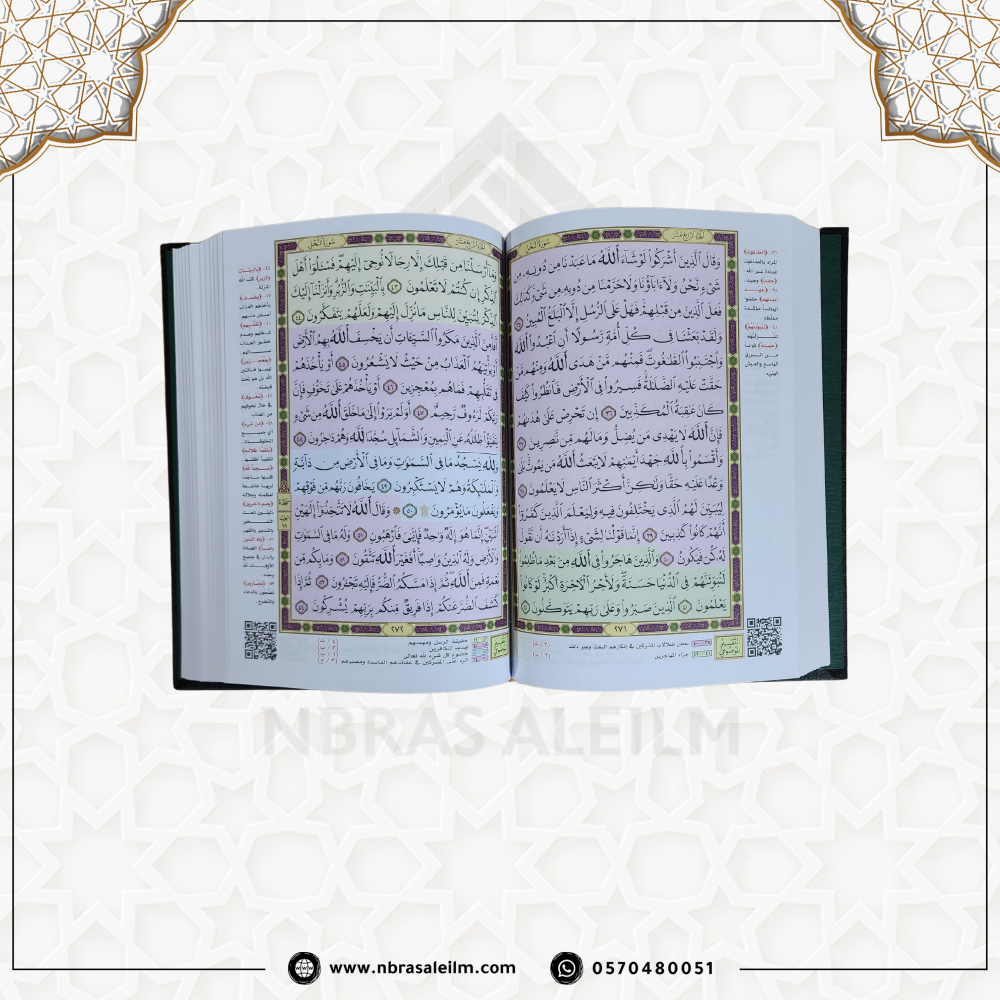 سُورَةُ النَّحْل
الجُزْءُ الرَّابِعَ عَشَرَ
وَقَالَ ٱلَّذِينَ أَشْرَكُوا۟ لَوْ شَآءَ ٱللَّهُ مَا عَبَدْنَا مِن دُونِهِۦ مِن
شَىْءٍ نَّحْنُ وَلَآ ءَابَآؤُنَا وَلَا حَرَّمْنَا مِن دُونِهِۦ مِن شَىْءٍ كَذَٰلِكَ
فَعَلَ ٱلَّذِينَ مِن قَبْلِهِمْ فَهَلْ عَلَى ٱلرُّسُلِ إِلَّا ٱلْبَلَٰغُ ٱلْمُبِينُ ٣٥
وَلَقَدْ بَعَثْنَا فِى كُلِّ أُمَّةٍ رَّسُولًا أَنِ ٱعْبُدُوا۟ ٱللَّهَ
وَٱجْتَنِبُوا۟ ٱلطَّٰغُوتَ فَمِنْهُم مَّنْ هَدَى ٱللَّهُ وَمِنْهُم مَّنْ
حَقَّتْ عَلَيْهِ ٱلضَّلَٰلَةُ فَسِيرُوا۟ فِى ٱلْأَرْضِ فَٱنظُرُوا۟ كَيْفَ
كَانَ عَٰقِبَةُ ٱلْمُكَذِّبِينَ ٣٦ إِن تَحْرِصْ عَلَىٰ هُدَىٰهُمْ
فَإِنَّ ٱللَّهَ لَا يَهْدِى مَن يُضِلُّ وَمَا لَهُم مِّن نَّٰصِرِينَ ٣٧
وَأَقْسَمُوا۟ بِٱللَّهِ جَهْدَ أَيْمَٰنِهِمْ لَا يَبْعَثُ ٱللَّهُ مَن يَمُوتُ بَلَىٰ
وَعْدًا عَلَيْهِ حَقًّا وَلَٰكِنَّ أَكْثَرَ ٱلنَّاسِ لَا يَعْلَمُونَ ٣٨
لِيُبَيِّنَ لَهُمُ ٱلَّذِى يَخْتَلِفُونَ فِيهِ وَلِيَعْلَمَ ٱلَّذِينَ كَفَرُوٓا۟
أَنَّهُمْ كَانُوا۟ كَٰذِبِينَ ٣٩ إِنَّمَا قَوْلُنَا لِشَىْءٍ إِذَآ أَرَدْنَٰهُ أَن نَّقُولَ
لَهُۥ كُن فَيَكُونُ ٤٠ وَٱلَّذِينَ هَاجَرُوا۟ فِى ٱللَّهِ مِنۢ بَعْدِ مَا ظُلِمُوا۟
لَنُبَوِّئَنَّهُمْ فِى ٱلدُّنْيَا حَسَنَةً وَلَأَجْرُ ٱلْءَاخِرَةِ أَكْبَرُ لَوْ كَانُوا۟
يَعْلَمُونَ ٤١ ٱلَّذِينَ صَبَرُوا۟ وَعَلَىٰ رَبِّهِمْ يَتَوَكَّلُونَ ٤٢
٢٧١
جزاء المهاجرين
سُورَةُ النَّحْل
الجُزْءُ الرَّابِعَ عَشَرَ
وَمَآ أَرْسَلْنَا مِن قَبْلِكَ إِلَّا رِجَالًا نُّوحِىٓ إِلَيْهِمْ فَسْـَٔلُوٓا۟ أَهْلَ
ٱلذِّكْرِ إِن كُنتُمْ لَا تَعْلَمُونَ ٤٣ بِٱلْبَيِّنَٰتِ وَٱلزُّبُرِ وَأَنزَلْنَآ إِلَيْكَ
ٱلذِّكْرَ لِتُبَيِّنَ لِلنَّاسِ مَا نُزِّلَ إِلَيْهِمْ وَلَعَلَّهُمْ يَتَفَكَّرُونَ ٤٤
أَفَأَمِنَ ٱلَّذِينَ مَكَرُوا۟ ٱلسَّيِّـَٔاتِ أَن يَخْسِفَ ٱللَّهُ بِهِمُ ٱلْأَرْضَ
أَوْ يَأْتِيَهُمُ ٱلْعَذَابُ مِنْ حَيْثُ لَا يَشْعُرُونَ ٤٥ أَوْ يَأْخُذَهُمْ
فِى تَقَلُّبِهِمْ فَمَا هُم بِمُعْجِزِينَ ٤٦ أَوْ يَأْخُذَهُمْ عَلَىٰ تَخَوُّفٍ فَإِنَّ
رَبَّكُمْ لَرَءُوفٌ رَّحِيمٌ ٤٧ أَوَلَمْ يَرَوْا۟ إِلَىٰ مَا خَلَقَ ٱللَّهُ مِن شَىْءٍ
يَتَفَيَّؤُا۟ ظِلَٰلُهُۥ عَنِ ٱلْيَمِينِ وَٱلشَّمَآئِلِ سُجَّدًا لِّلَّهِ وَهُمْ دَٰخِرُونَ ٤٨
وَلِلَّهِ يَسْجُدُ مَا فِى ٱلسَّمَٰوَٰتِ وَمَا فِى ٱلْأَرْضِ مِن دَآبَّةٍ
وَٱلْمَلَٰٓئِكَةُ وَهُمْ لَا يَسْتَكْبِرُونَ ٤٩ يَخَافُونَ رَبَّهُم مِّن فَوْقِهِمْ
وَيَفْعَلُونَ مَا يُؤْمَرُونَ ۩ ٥٠ ۞ وَقَالَ ٱللَّهُ لَا تَتَّخِذُوٓا۟ إِلَٰهَيْنِ
ٱثْنَيْنِ إِنَّمَا هُوَ إِلَٰهٌ وَٰحِدٌ فَإِيَّٰىَ فَٱرْهَبُونِ ٥١ وَلَهُۥ مَا فِى ٱلسَّمَٰوَٰتِ
وَٱلْأَرْضِ وَلَهُ ٱلدِّينُ وَاصِبًا أَفَغَيْرَ ٱللَّهِ تَتَّقُونَ ٥٢ وَمَا بِكُم مِّن
نِّعْمَةٍ فَمِنَ ٱللَّهِ ثُمَّ إِذَا مَسَّكُمُ ٱلضُّرُّ فَإِلَيْهِ تَجْـَٔرُونَ ٥٣ ثُمَّ إِذَا
كَشَفَ ٱلضُّرَّ عَنكُمْ إِذَا فَرِيقٌ مِّنكُم بِرَبِّهِمْ يُشْرِكُونَ ٥٤
٢٧٢
حقيقة الرسل ومهمتهم
تهديد الكافرين
خضوع كل شيء لله تعالى
الرد على المشركين في عقائدهم الفاسدة ومصيرهم
NBRAS ALEILM
www.nbrasaleilm.com
0570480051